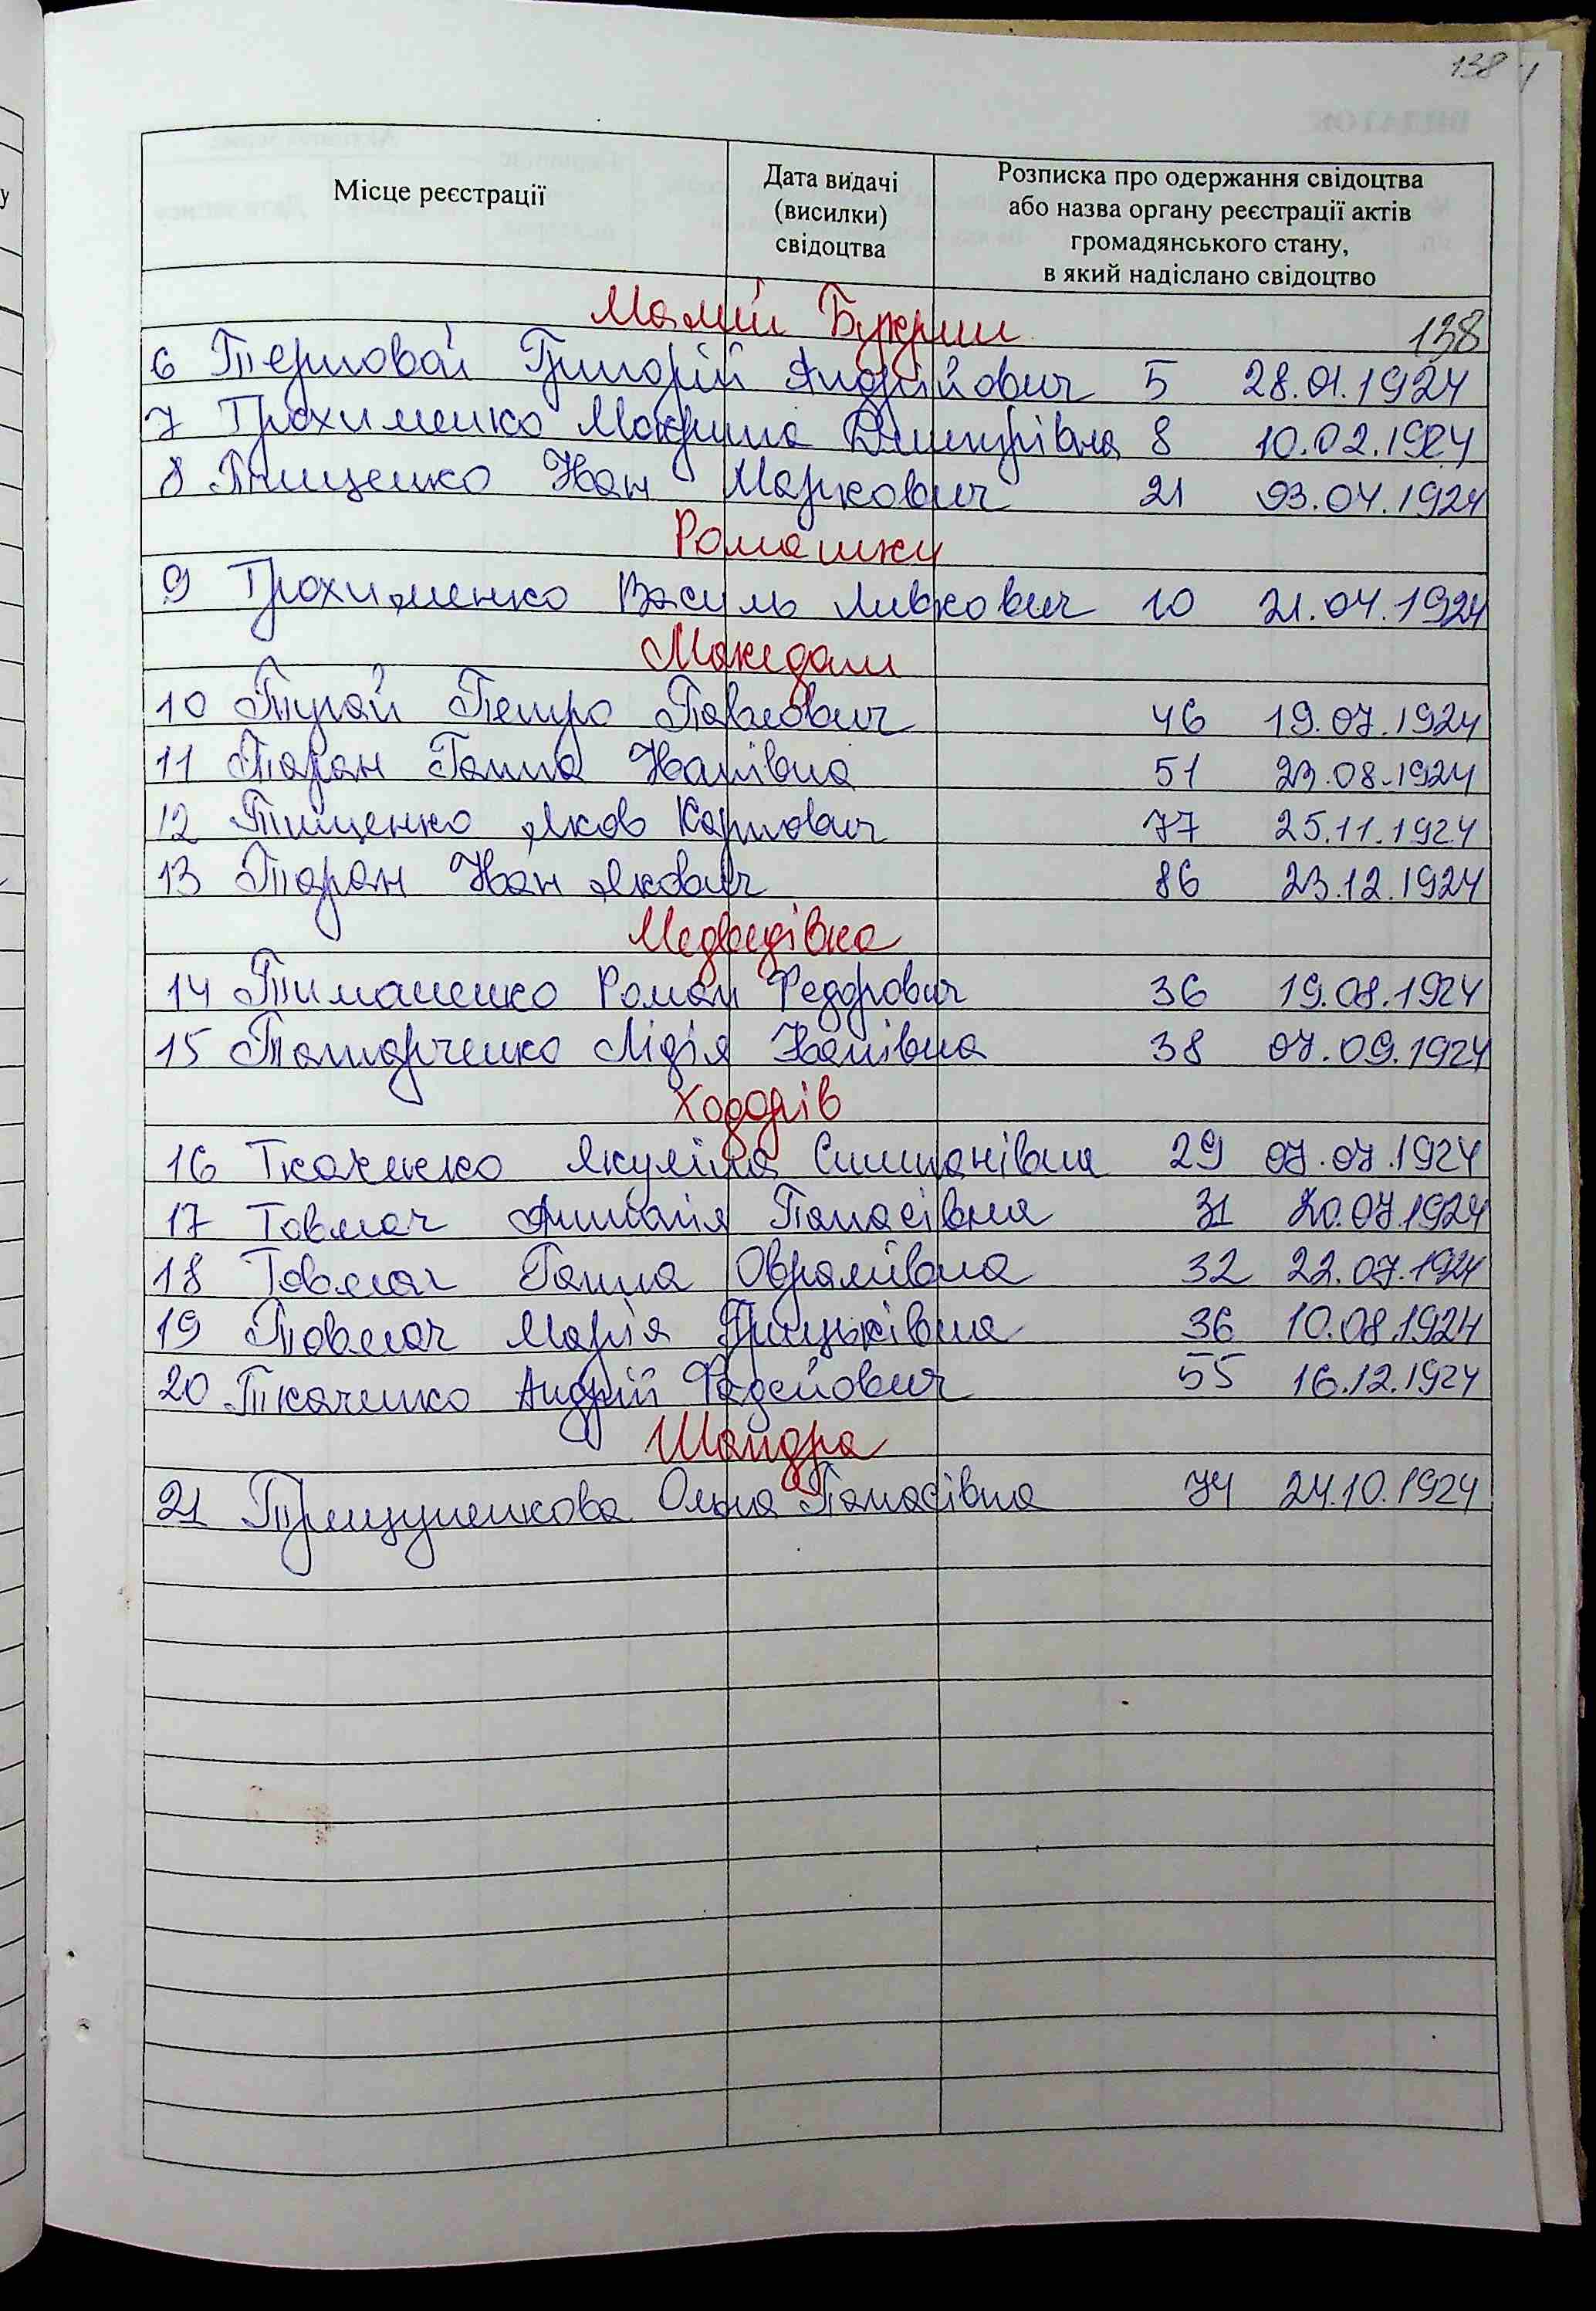 138
Місце реєстрації
Дата видачі
(висилки)
свідоцтва
Розписка про одержання свідоцтва
або назва органу реєстрації актів
громадянського стану,
в який надіслано свідоцтво
Малий Букрин
138
6 Терновой Григорій Андрійович 5 28.01.1924
7 Трохименко Мокрина Дмитрівна 8 10.02.1924
8 Тищенко Іван Маркович 21 03.04.1924
Ромашки
9 Трохименко Василь Левкович 10 21.04.1924
Македони
10 Тугай Петро Павлович 46 19.07.1924
11 Таран Ганна Іванівна 51 23.08.1924
12 Тищенко Яков Карпович 77 25.11.1924
13 Таран Іван Якович 86 23.12.1924
Медведівка
14 Тиманенко Роман Федорович 36 19.08.1924
15 Лідія Іванівна 38 07.09.1924
Ходорів
16 Ткаченко Якуліна Степанівна 29 07.07.1924
17 Товмач Панасівна 31 20.07.1924
18 Товмач Ганна Оврамівна 32 22.07.1924
19 Товмач Марія Грицьківна 36 10.08.1924
20 Ткаченко Андрій Фадейович 55 16.12.1924
Шандра
21 Ольга Панасівна 74 24.10.1924